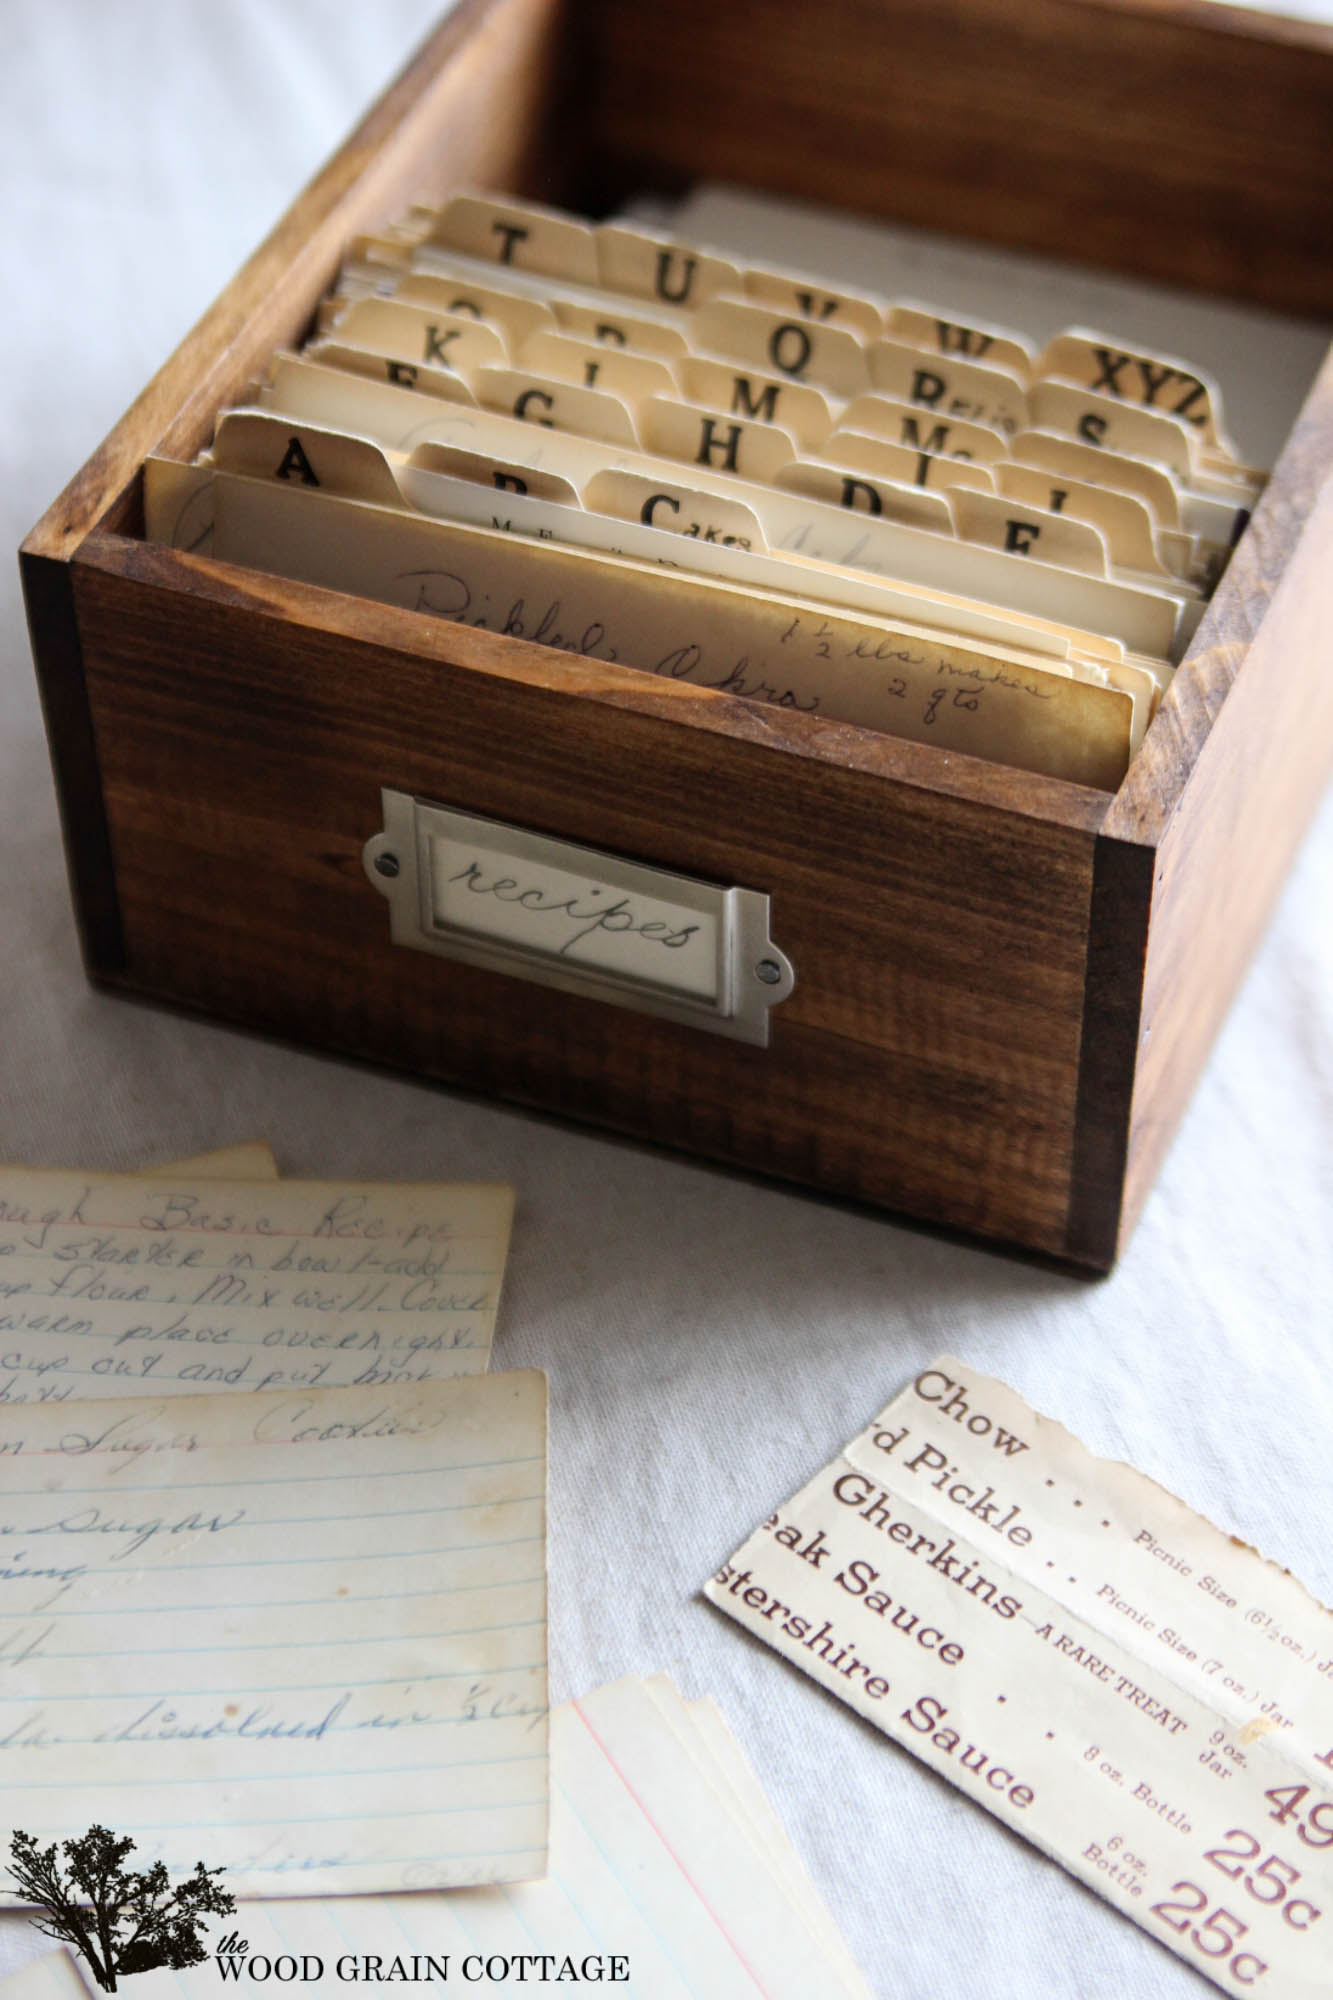 T U V W XYZ
Q R Relis S
K L M
G H I J
A B Cakes D E
Pickled Okra 1 1/2 lbs makes
2 qts
recipes
Basic Recipe
starter in bowl-add
flour. Mix well. Cover
warm place overnight.
cup out and put
Sugar Cookies
sugar
dissolved in 1/2 cup
Chow . . . Picnic Size (6½ oz.)
d Pickle . . Picnic Size (7 oz.) Jar
Gherkins—A RARE TREAT 9 oz. Jar 49
eak Sauce . . 8 oz. Bottle 25c
stershire Sauce 6 oz. Bottle 25c
the
WOOD GRAIN COTTAGE